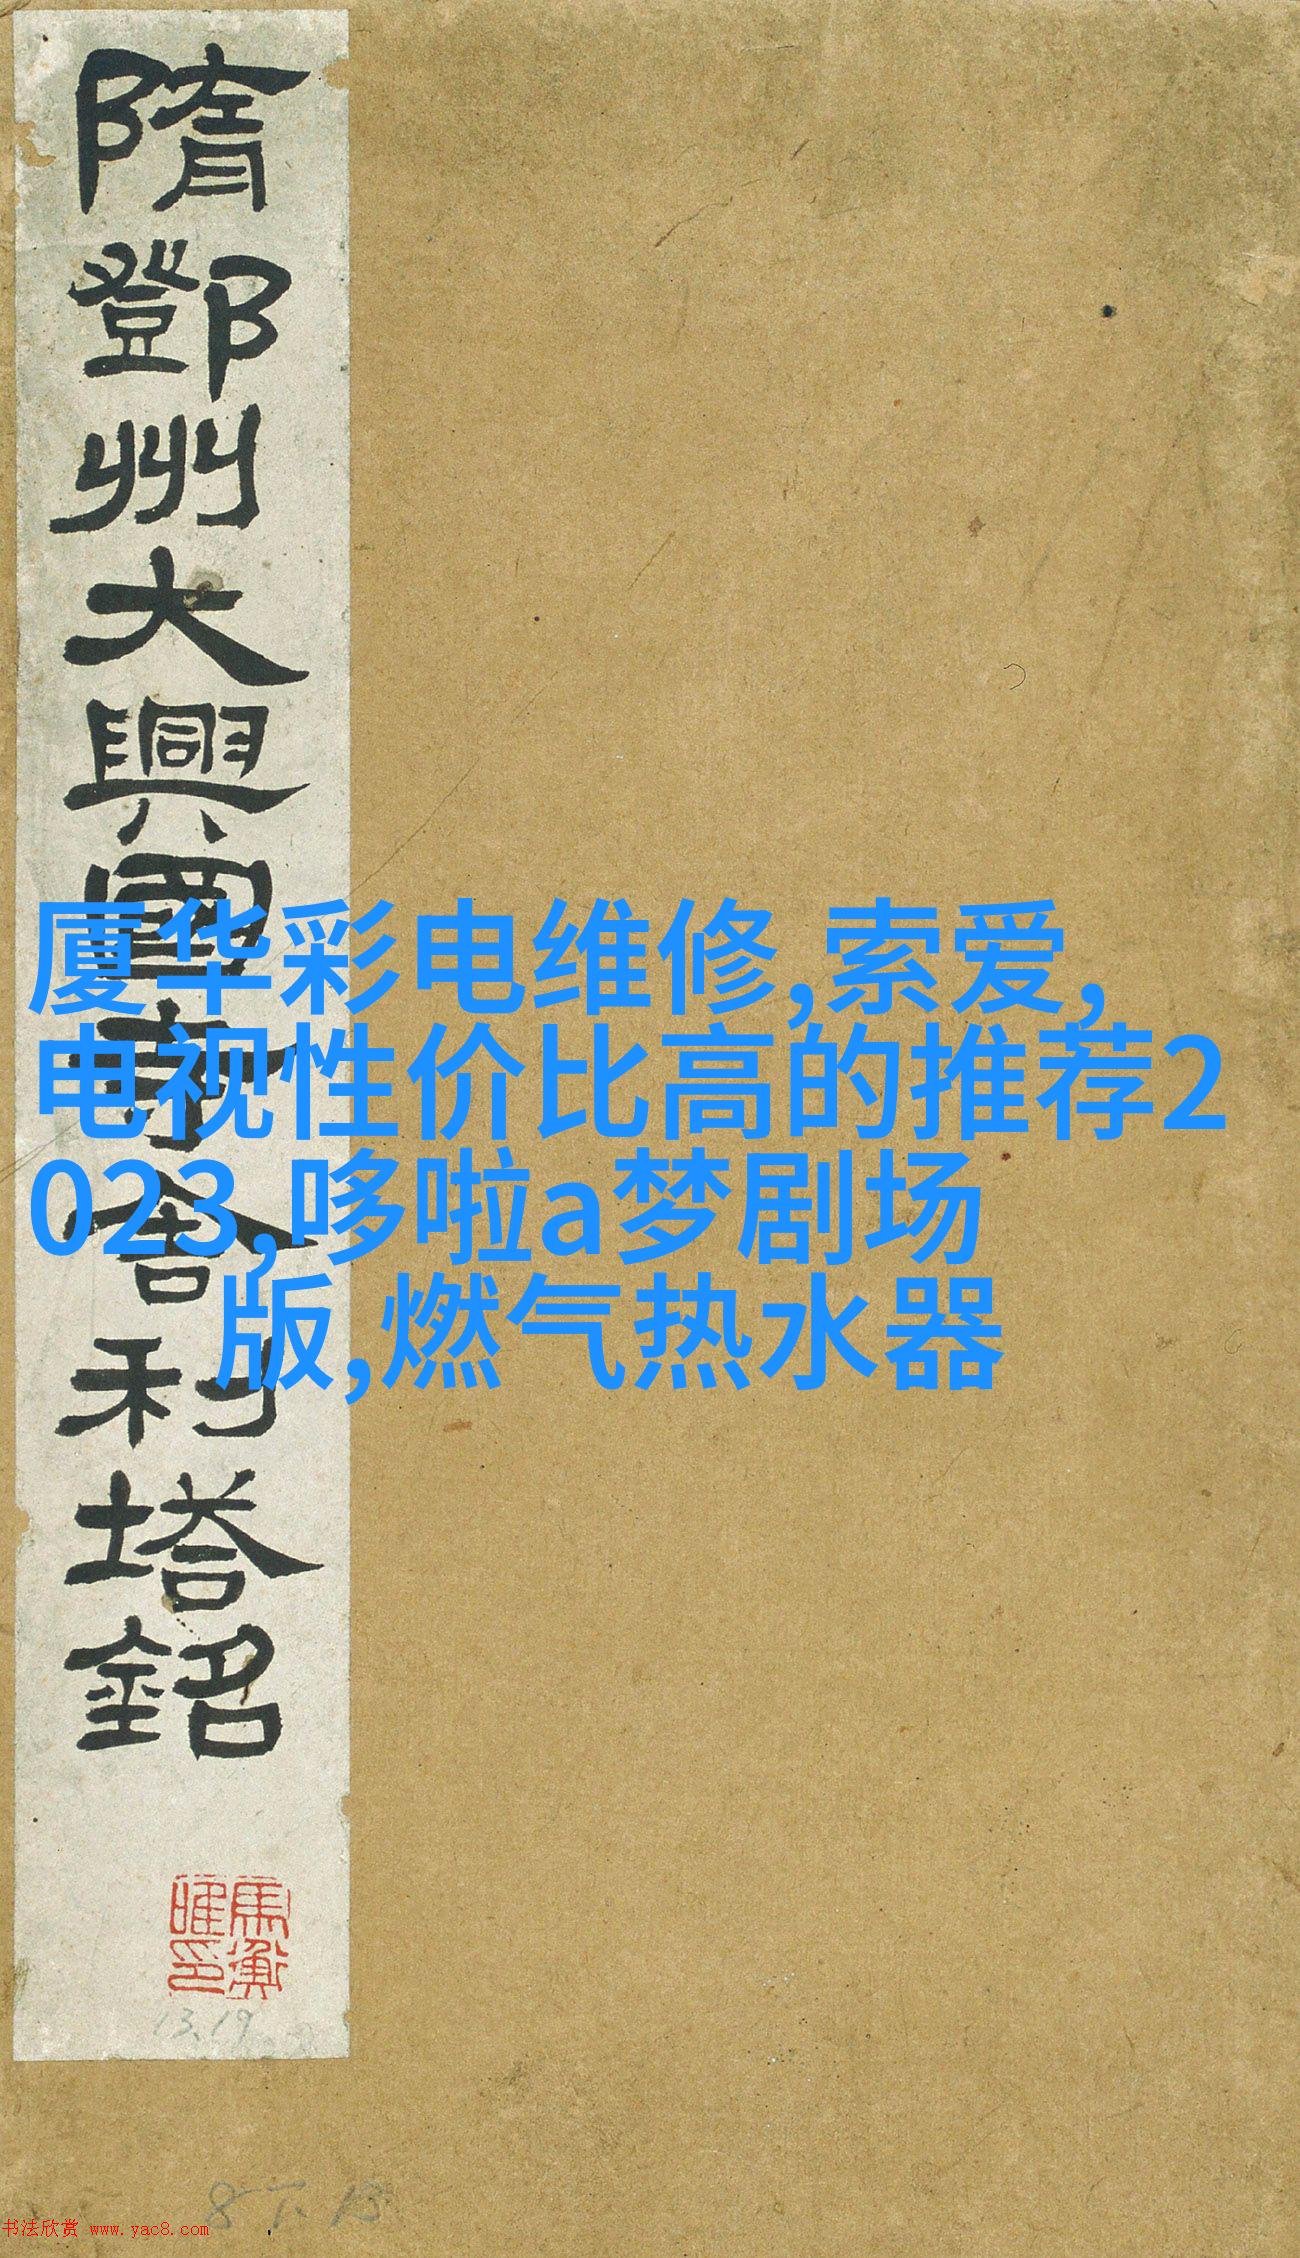 隋鄧州大興國寺舍利塔銘
馬衡
唯印
13.19
厦华彩电维修,索爱,
电视性价比高的推荐2
023,哆啦a梦剧场
版,燃气热水器
8下13
书法欣赏 www.yac8.com